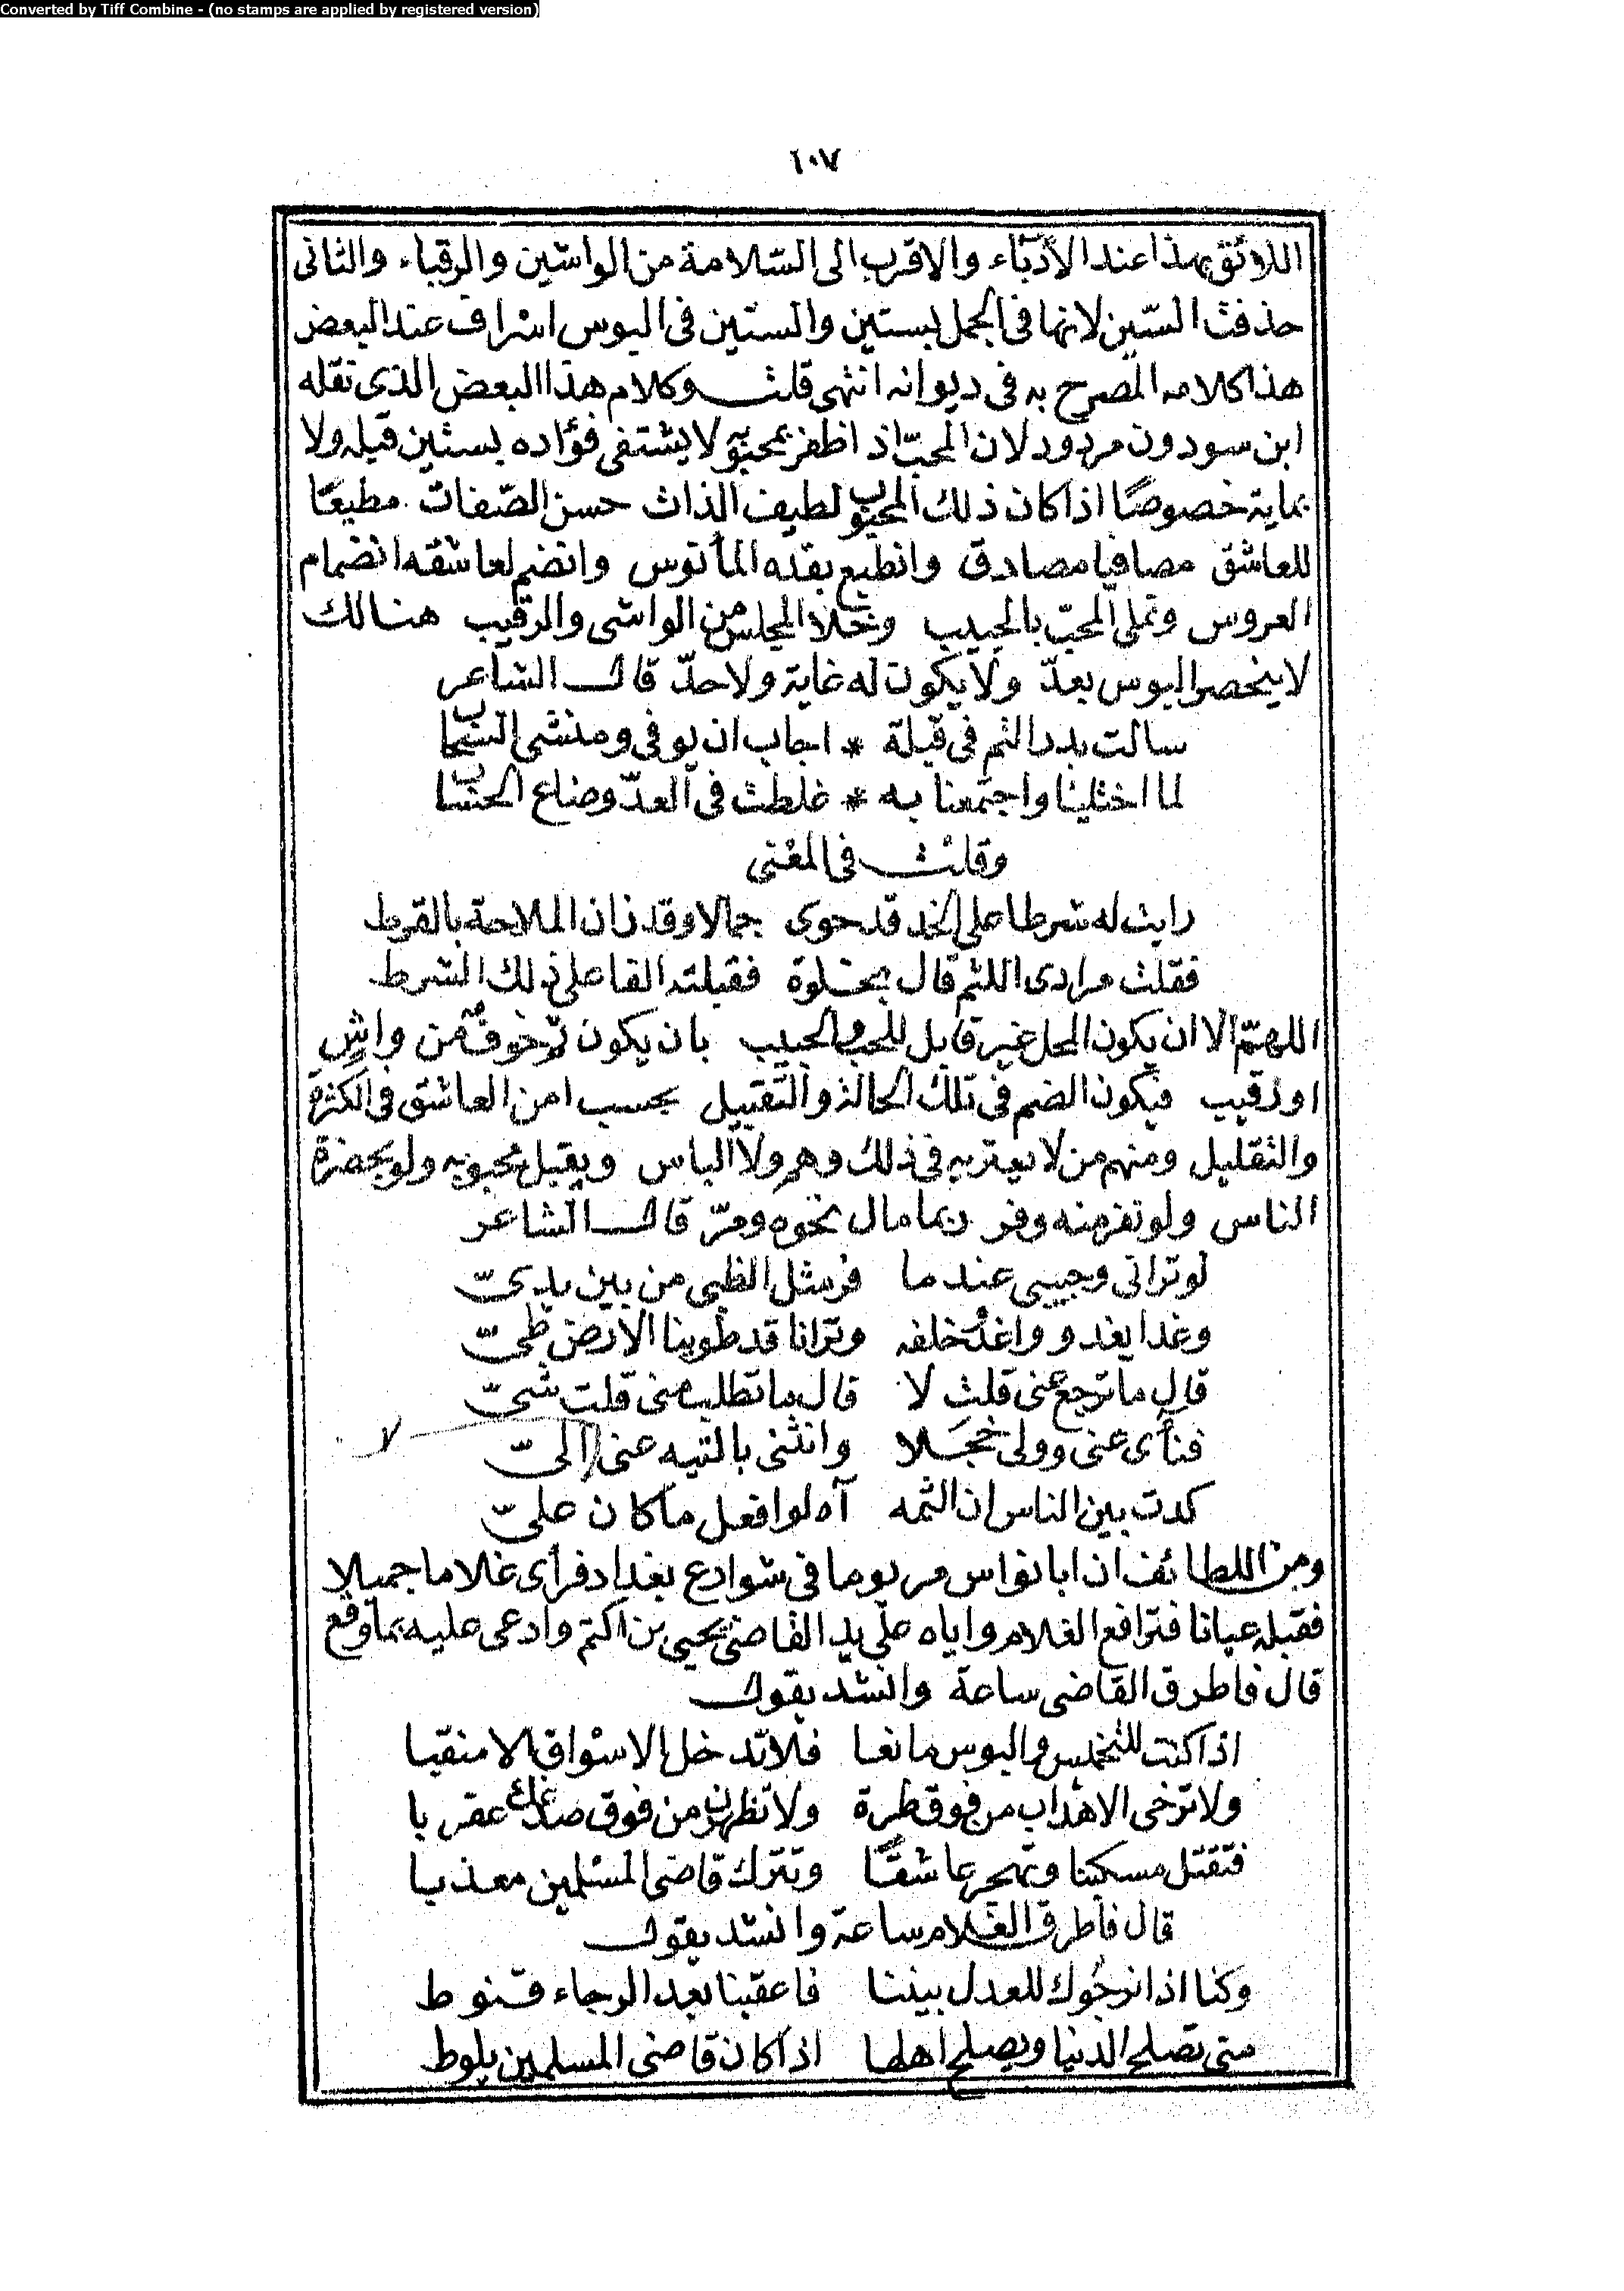 Converted by Tiff Combine - (no stamps are applied by registered version)
١٠٧
اللائق بهذا عند الأدباء والاقرب الى السّلامة من الواشين والرقباء والثانى
حذفت السّين لانها فى الجمل بستين والستين فى البوس اسراف عند البعض
هذا كلامه المصرح به فى ديوانه انتهى قلت وكلام هذا البعض الذى نقله
ابن سودون مردود لان المحبّ اذ اظفر بمحبوبه لا يشتفى فؤاده بستين قبله ولا
بماية خصوصًا اذا كان ذلك المحبوب لطيف الذات حسن الصّفات مطيعًا
للعاشق مصافيا مصادق وانطبع بقده المأنوس وانضم لعاشقه انضمام
العروس وتملى المحبّ بالحبيب وخلا المجلس من الواشى والرقيب هنالك
لا ينحصر البوس بعدّ ولا يكون له غاية ولا حدّ قال الشاعر
سالت بدر التم فى قبلة * اجاب ان يوفى ومنشى السحاب
لما اختلينا واجتمعنا به * غلطت فى العدّ وضاع الحساب
وقلت فى المعْنى
رايت له شرطا على الخد قد حوى جمالا وقد زان الملاحة بالقرط
فقلت مرادى اللثم قال بخلوة فقبلته الفا على ذلك الشرط
اللهمّ الا ان يكون المحل غير قابل للمحب والحبيب بان يكون ثمّ خوف من واشٍ
او رقيب فيكون الضم فى تلك الحالة والتّقبيل بحسب امن العاشق فى الكثرة
والتقليل ومنهم من لا يعتريه فى ذلك وهم ولا الباس ويقبل محبوبه ولو بحضرة
الناس ولو نفر منه وفر ربما مال نحوه ومرّ قال الشاعر
لو ترانى وحبيبى عندما فر مثل الظبى من بين يدىّ
وغدا يغدو واغدُ خلفه وترانا قد طوينا الارض طىّ
قال ما ترجع عنى قلت لا قال ما تطلب منى قلت شىّ
فنأى عنى وولى خجَلا وانثنى بالتيه عنى لا الىّ
لا
كدت بين الناس ان الثمه آه لو افعل ما كان علىّ
ومن اللطائف ان ابا نواس مر يوما فى شوارع بغداد فرأى غلاما جميلا
فقبله عيانا فترافع الغلام واياه على يد القاضى يحيى بن اكتم وادعى عليه بما وقع
قال فاطرق القاضى ساعة وانشد يقول
اذا كنت للتخميس والبوس مانعا فلا تدخل الاسْواق الا منقبا
ولا ترخى الاهداب من فوق طرة ولا تظهرن من فوق صدغك عقربا
فتقتل مسكينا وتهجر عاشقًا وتترك قاضى المسْلمين معذبا
قال فأطرق الغلام ساعة وانشد يقول
وكنا اذا نرجُوك للعدل بيننا فاعقبنا بعد الرجاء قنوط
متى تصلح الدنيا ويصلح اهلها اذا كان قاضى المسلمين يلوط